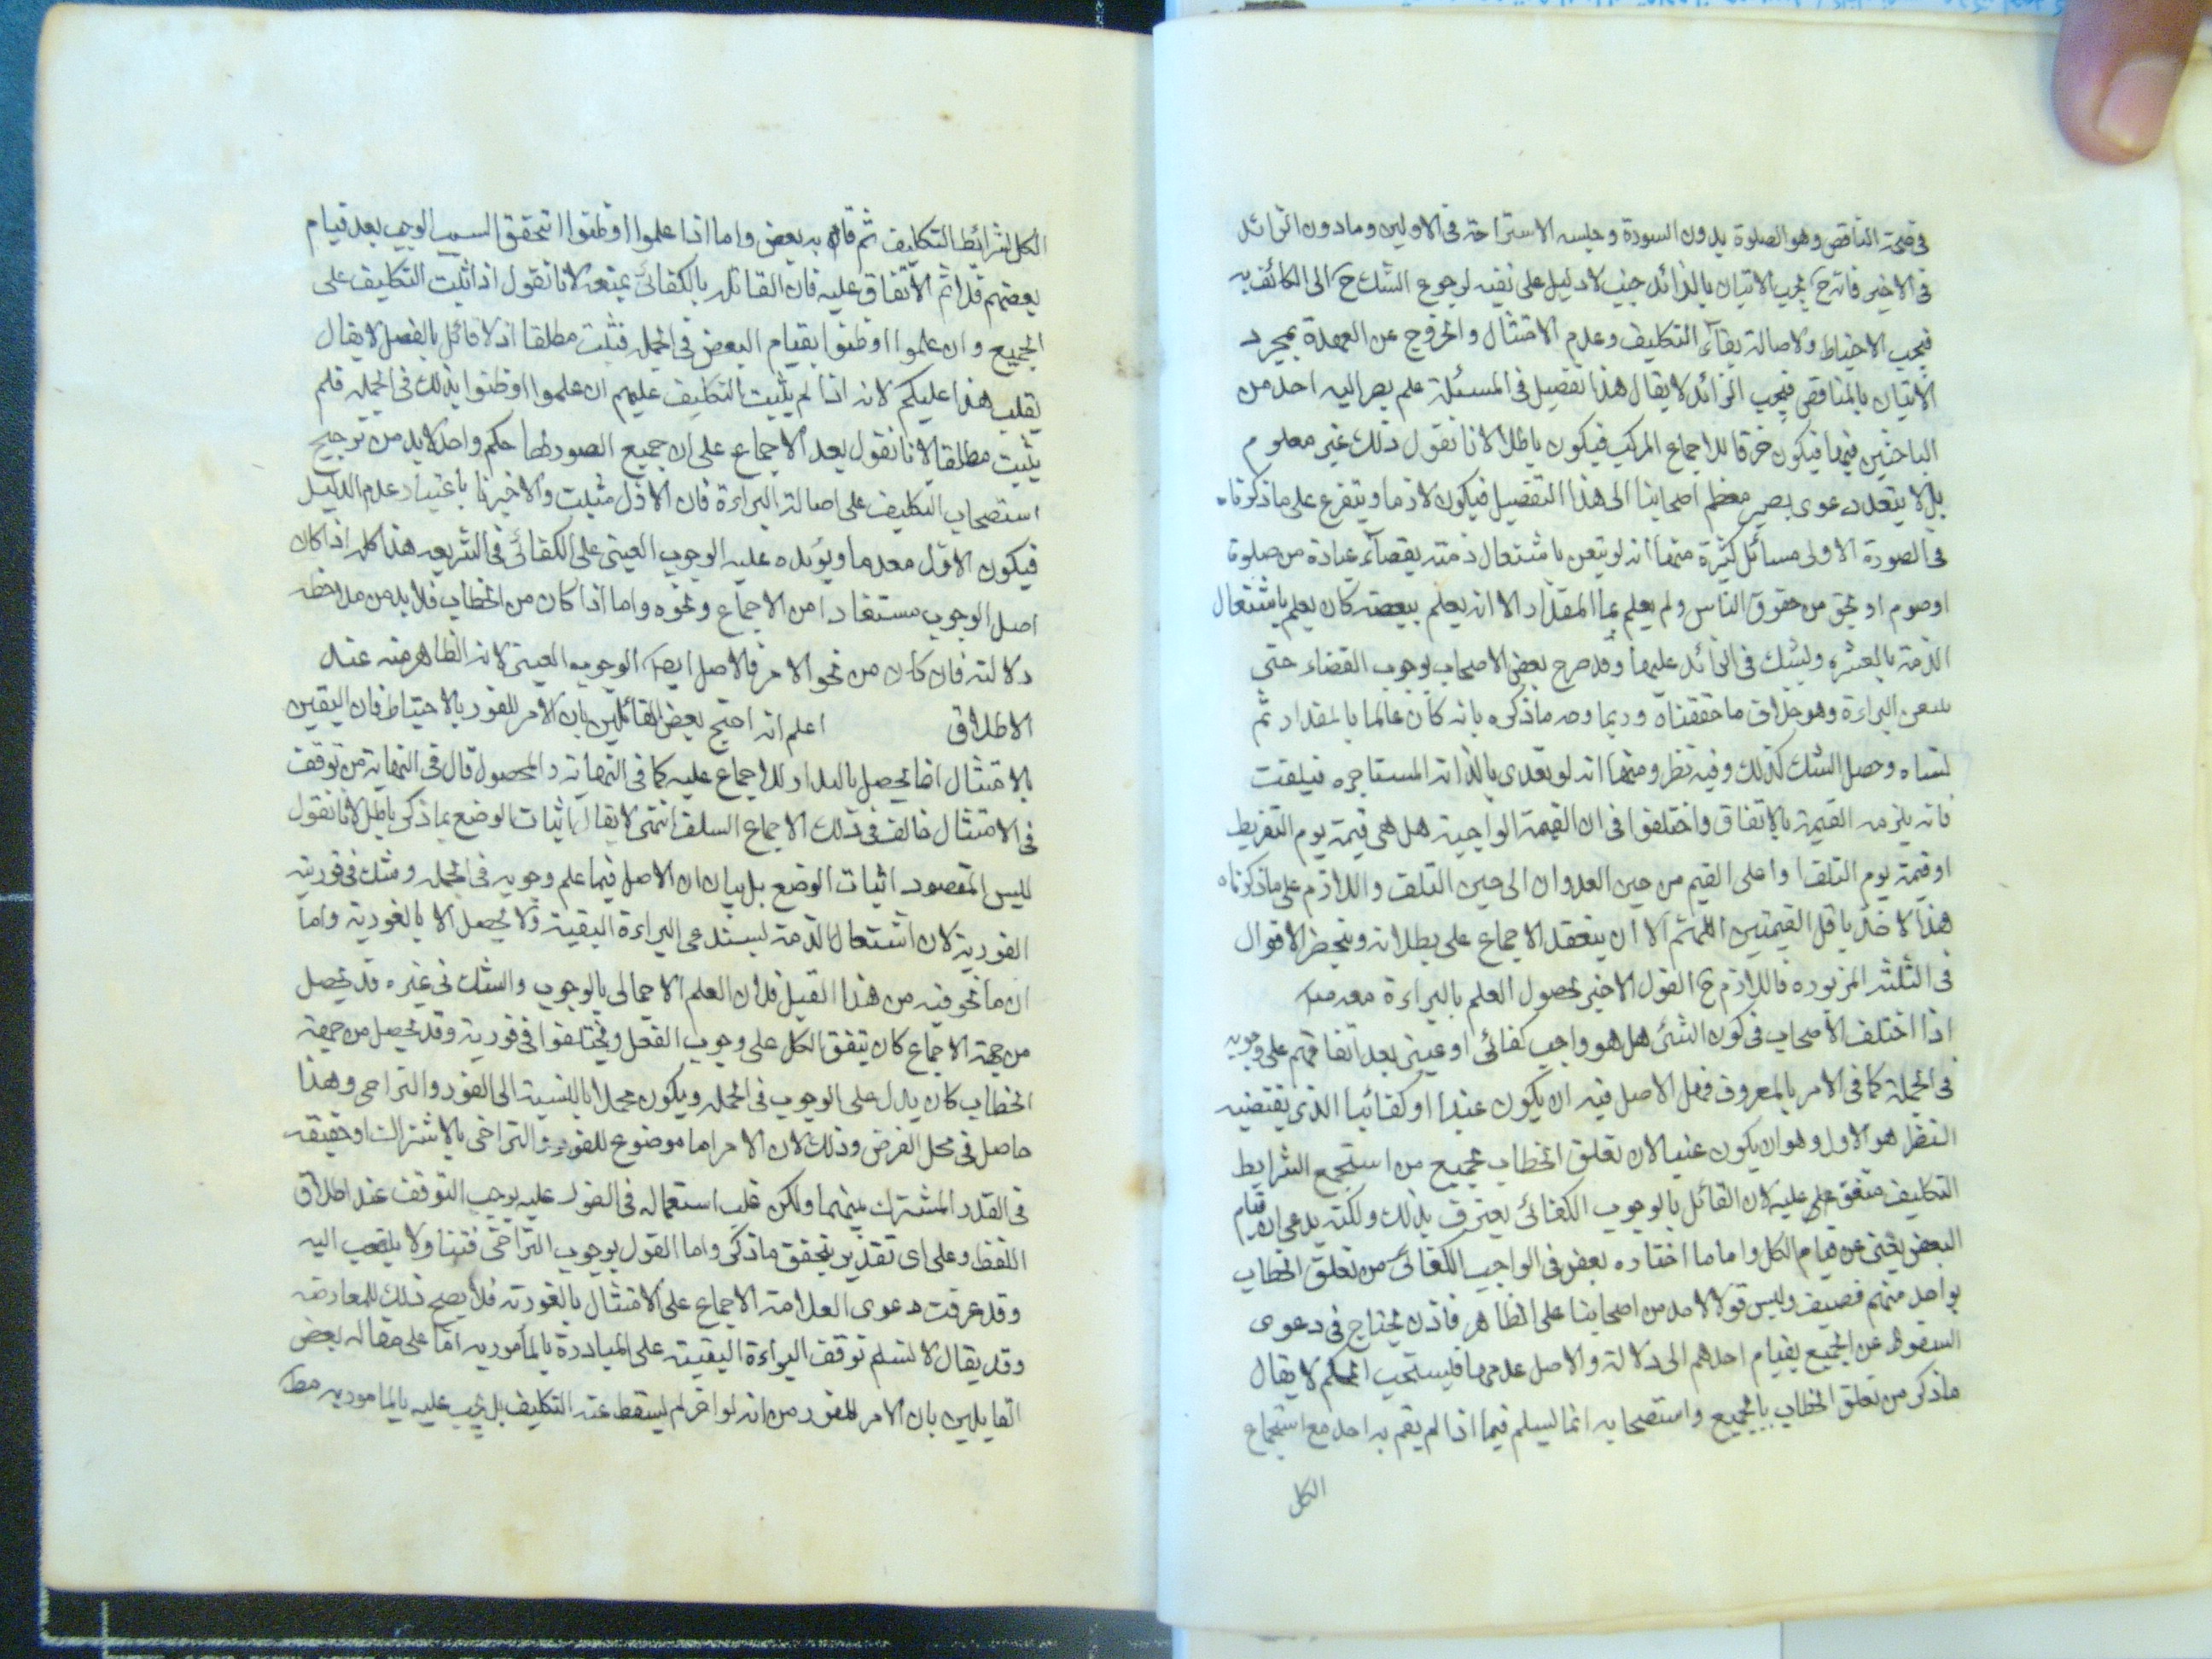 فى صحة الناقص وهو الصلوة بدون السورة وجلسه الاستراحة فى الاولين ومادون الزائد
فى الاخير فانه ح يجب الاتيان بالزائد حيث لا دليل على نفيه لرجوع الشك ح الى المكلف به
فيجب الاحتياط ولاصالة بقآء التكليف وعدم الامتثال والخروج عن العهدة بمجرد
الاتيان بالناقص فيجب الزائد لا يقال هذا تفصيل فى المسئلة علم يصر اليه احد من
الباحثين فيها فيكون خرقا للاجماع المركب فيكون باطلا لانا نقول ذلك غير معلوم
بل لا يبعد دعوى بصير معظم اصحابنا الى هذا التفصيل فيكون لازما ويتفرع على ماذكرناه
فى الصورة الاولى مسائل كثيرة منها انه لو تيقن باشتغال ذمته بقضآء عبادة من صلوة
او صوم او نحو من حقوق الناس ولم يعلم بما المقدار الا انه يعلم ببعضه كان يعلم باشتغال
الذمة بالعشرة ويشك فى الزائد عليها وقد صرح بعض الاصحاب بوجوب القضاء حتى
البراءة وهو خلاف ماحققناه وربما وجه ماذكره بانه كان عالما بالمقدار ثم
نساه وحصل الشك كذلك وفيه نظر ومنها انه لو تعدى بالدابة المستاجره فتلفت
فانه يلزمه القيمة بالاتفاق واختلفوا فى ان القيمة الواجبة هل هى قيمة يوم التفريط
او قيمة يوم التلف او اعلى القيم من حين العدوان الى حين التلف واللازم على ماذكرناه
هذا الاخذ باقل القيمتين اللهم الا ان ينعقد الاجماع على بطلانه وينحصر الاقوال
فى الثلثه المزبوره فاللازم ح القول الاخير لحصول العلم بالبراءة معه
اذا اختلف الاصحاب فى كون الشئ هل هو واجب كفائى او عينى بعد اتفاقهم على وجوبه
فى الجملة كما فى الامر بالمعروف فهل الاصل فيه ان يكون عينيا او كفائيا الذى يقتضيه
النظر هو الاول وهو ان يكون عينيا لان تعلق الخطاب بجميع من استجمع الشرايط
التكليف متفق عليه لان القائل بالوجوب الكفائى يعترف بذلك ولكنه يدعى ان قيام
البعض يغنى عن قيام الكل واما ما اختاره بعض فى الواجب الكفائى من تعلق الخطاب
بواحد منهم فضعيف وليس قولا لاحد من اصحابنا على الظاهر فاذن يحتاج فى دعوى
السقوط عن الجميع بقيام احدهم الى دلالة والاصل عدمها فليستحب الحكم لا يقال
ماذكر من تعلق الخطاب بالجميع واستصحابه انما يسلم فيما اذا لم يقم به احد مع استجماع
الكل
الكل لشرائط التكليف ثم قام به بعض واما اذا علموا او ظنوا تحقق السبب الوجب بعد قيام
بعضهم قد اتم الاتفاق عليه فان القائل بالكفائى يمنعه لانا نقول اذا ثبت التكليف على
الجميع وان علموا او ظنوا بقيام البعض فى الجمله فثبت مطلقا اذ لا قائل بالفصل لا يقال
يقلب هذا عليكم لانه اذا لم يثبت التكليف عليهم ان علموا او ظنوا بذلك فى الجمله فلم
يثبت مطلقا لانا نقول بعد الاجماع على ان جميع الصور لها حكم واحد لا بد من ترجيح
استصحاب التكليف على اصالة البراءة فان الاول مثبت والاخير ناف باعتبار عدم الدليل
فيكون الاول مقدما ويؤيده عليه الوجوب العينى على الكفائى فى الشريعه هذا كله اذا كان
اصل الوجوب مستفادا من الاجماع ونحوه واما اذا كان من الخطاب فلا بد من ملاحظه
دلالته فان كان من نحو الامر فالاصل ايضا الوجوب العينى لانه الظاهر منه عند
الاطلاق اعلم انه احتج بعض القائلين بان الامر للفور بالاحتياط فان اليقين
بالامتثال انما يحصل بالبدار للاجماع عليه كما فى النهاية والمحصول قال فى النهاية من توقف
فى الامتثال خالف فى ذلك الاجماع السلف انتهى لا يقال اثبات الوضع بماذكر باطل لانا نقول
ليس المقصود اثبات الوضع بل بيان ان الاصل فيما علم وجوبه فى الجمله وشك فى فوريته
الفورية لان اشتغال الذمة يستدعى البراءة اليقينية ولا يحصل الا بالفورية واما
ان ما نحو فيه من هذا القبيل فلان العلم الاجمالى بالوجوب والشك فى غيره قد يحصل
من جهة الاجماع كان يتفق الكل على وجوب الفعل ويختلفوا فى فوريته وقد يحصل من جهة
الخطاب كان يدل على الوجوب فى الجمله ويكون مجملا بالنسبة الى الفور والتراخى وهذا
حاصل فى محل الفرض وذلك لان الامر اما موضوع للفور والتراخى بالاشتراك او حقيقة
فى القدر المشترك بينهما ولكن غلب استعماله فى الفور عليه يوجب التوقف عند اطلاق
اللفظ وعلى اى تقدير يتحقق ماذكر واما القول بوجوب التراخى فتننا ولا يلتفت اليه
وقد عرفت دعوى العلامة الاجماع على الامتثال بالفورية فلا يصح ذلك للمعارضه
وقد يقال لا نسلم توقف البراءة اليقينية على المبادرة بالمأمور به اما على مقاله بعض
القايلين بان الامر للفور من انه لو اخر لم يسقط عنه التكليف بل يجب عليه بالمامور به